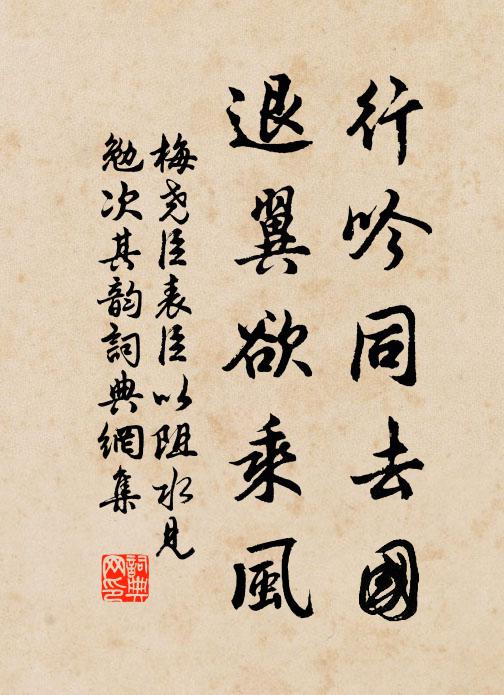 行吟同去國
退翼欲乘風
梅尧臣表臣以阻水見
勉次其韵詞典網集
詞典網印